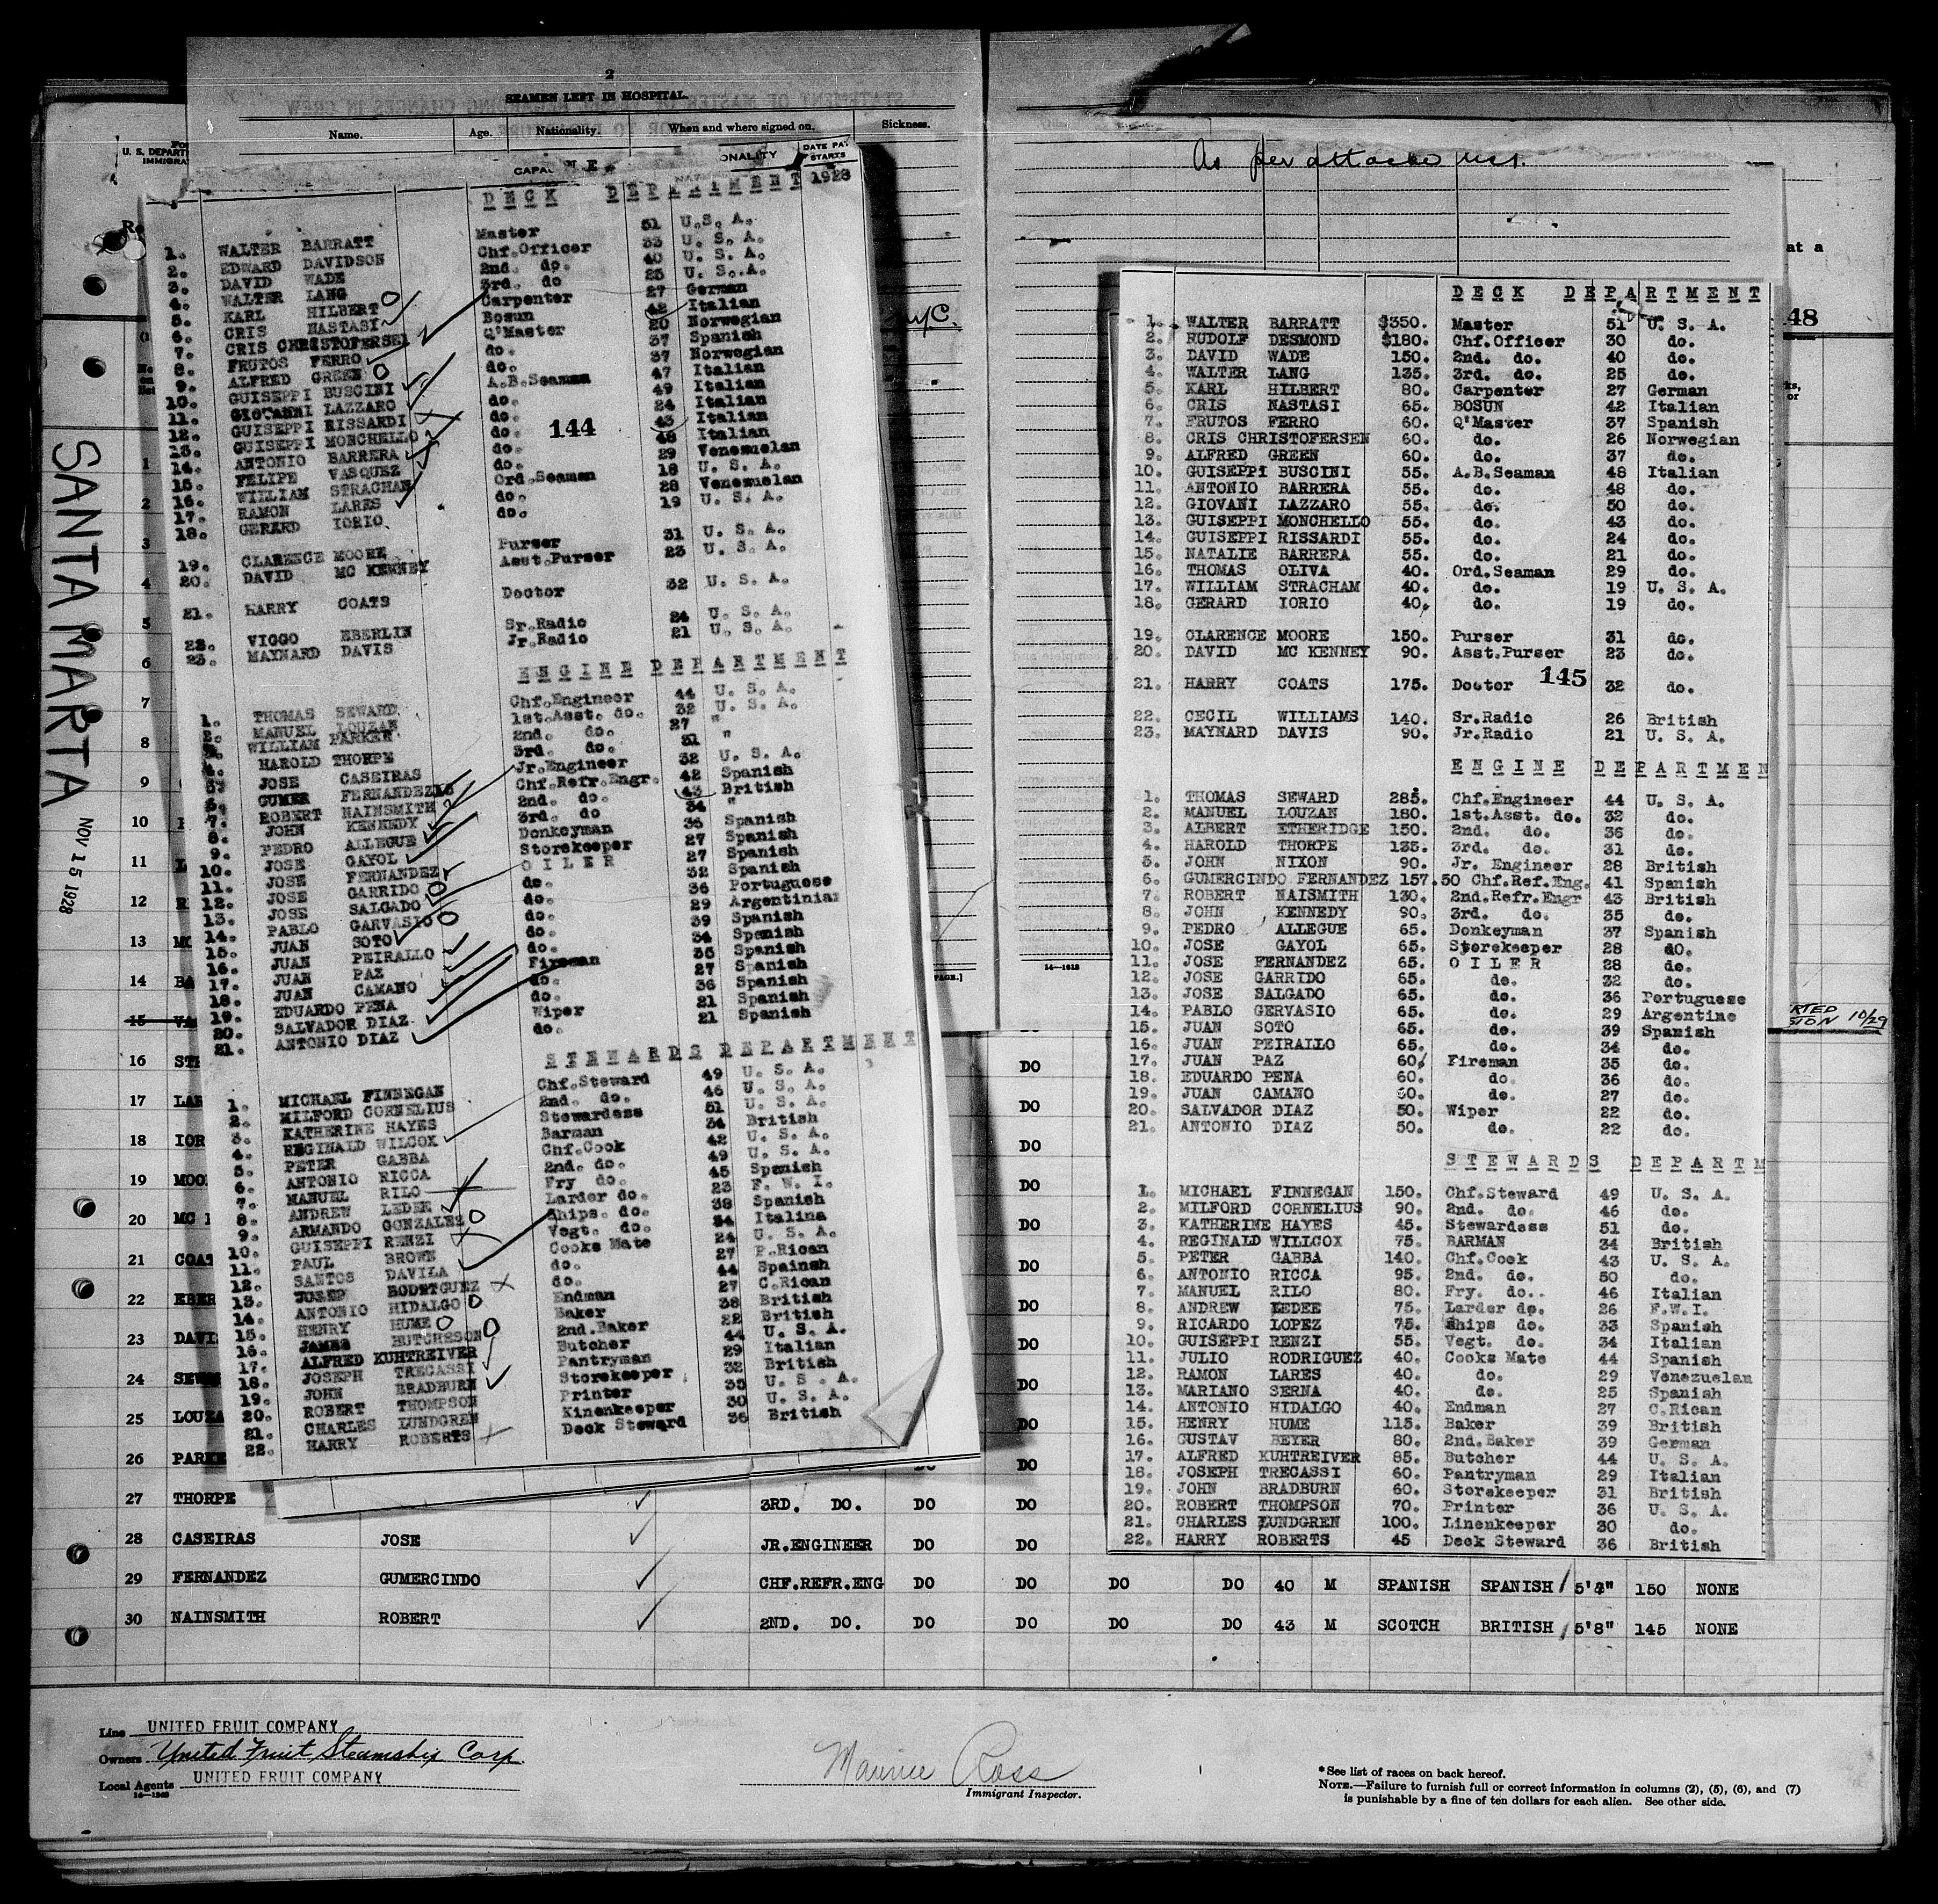 2
SEAMEN LEFT IN HOSPITAL.
Name. Age. Nationality. When and where signed on. Sickness.
U. S. DEPART
IMMIGRA
DATE PAY STARTS
1928
DECK DEPARTMENT
1. WALTER BARRATT Master 51 U.S. A.
2. EDWARD DAVIDSON Chf.Officer 33 U. S. A.
3. DAVID WADE 2nd. do. 40 U. S. A.
4. WALTER LANG 3rd. do 25 U. S. A.
5. KARL HILBERT Carpenter 27 German
6. CRIS NASTASI Bosun 42 Italian
7. CRIS CHRISTOFERSEN Q'Master 20 Norwegian
8. FRUTOS FERRO do. 37 Spanish
9. ALFRED GREEN do. 37 Norwegian
10. GUISEPPI BUSCINI A.B.Seaman 47 Italian
11. GIOVANNI LAZZARO do. 49 Italian
12. GUISEPPI RISSARDI do. 24 Italian
13. GUISEPPI MONCHELLO do. 43 Italian
14. ANTONIO BARRERA do. 48 Italian
15. FELIPE VASQUEZ do. 29 Venezuelan
16. WILLIAM STRACHAN Ord.Seaman 18 U. S. A.
17. RAMON LARES do. 28 Venezuelan
18. GERARD IORIO do. 19 U. S. A.
144
19. CLARENCE MOORE Purser 31 U. S. A.
20. DAVID MC KENNEY Asst.Purser 23 U. S. A.
21. HARRY COATS Doctor 32 U. S. A.
22. VIGGO EBERLIN Sr.Radio 24 U. S. A.
23. MAYNARD DAVIS Jr.Radio 21 U. S. A.
ENGINE DEPARTMENT
1. THOMAS SEWARD Chf.Engineer 44 U. S. A.
2. MANUEL LOUZAN 1st.Asst. do. 32 U. S. A.
3. WILLIAM PARKER 2nd. do. 27 "
4. HAROLD THORPE 3rd. do. 31 "
5. JOSE CASEIRAS Jr.Engineer 32 U. S. A.
6. GUMER FERNANDEZ Chf.Refr.Engr. 42 Spanish
7. ROBERT NAINSMITH 2nd. do. 43 British
8. JOHN KENNEDY 3rd. do 34 "
9. PEDRO ALLEGUE Donkeyman 36 Spanish
10. JOSE GAYOL Storekeeper 27 Spanish
11. JOSE FERNANDEZ OILER 27 Spanish
12. JOSE GARRIDO do. 32 Spanish
13. JOSE SALGADO do. 36 Portuguese
14. PABLO GARVASIO do. 29 Argentinian
15. JUAN SOTO do. 39 Spanish
16. JUAN PEIRALLO do. 34 Spanish
17. JUAN PAZ Fireman 35 Spanish
18. JUAN CAMANO do. 27 Spanish
19. EDUARDO PENA do. 36 Spanish
20. SALVADOR DIAZ Wiper 21 Spanish
21. ANTONIO DIAZ do. 21 Spanish
STEWARDS DEPARTMENT
1. MICHAEL FINNEGAN Chf.Steward 49 U. S. A.
2. MILFORD CORNELIUS 2nd. do. 46 U. S. A.
3. KATHERINE HAYES Stewardess 51 U. S. A.
4. REGINALD WILCOX Barman 34 British
5. PETER GABBA Chf.Cook 42 U. S. A.
6. ANTONIO RICCA 2nd. do. 49 U. S. A.
7. MANUEL RILO Fry do. 45 Spanish
8. ANDREW LEDEE Larder do. 23 F. W. I.
9. ARMANDO GONZALEZ Ships. do. 38 Spanish
10. GUISEPPI RENZI Vegt. do. 34 Italina
11. PAUL BROWN Cooks Mate 24 U. S. A.
12. SANTOS DAVILA do. 27 P.Rican
13. JOSEP RODRTGUEZ do. 44 Spainsh
14. ANTONIO HIDALGO Endman 27 C.Rican
15. HENRY HUME Baker 38 British
16. JAMES HUTCHESON 2nd.Baker 22 British
17. ALFRED KUHTREIVER Butcher 44 U. S. A.
18. JOSEPH TRECASSI Pantryman 29 Italian
19. JOHN BRADBURN Storekeeper 32 British
20. ROBERT THOMPSON Printer 35 U. S. A.
21. CHARLES LUNDGREN Kinenkeeper 30 U. S. A.
22. HARRY ROBERTS Deck Steward 36 British
As per attached list.
DECK DEPARTMENT
1. WALTER BARRATT $350. Master 51 U. S. A.
2. RUDOLF DESMOND $180. Chf.Officer 30 do.
3. DAVID WADE 150. 2nd. do. 40 do.
4. WALTER LANG 135. 3rd. do. 25 do.
5. KARL HILBERT 80. Carpenter 27 German
6. CRIS NASTASI 65. BOSUN 42 Italian
7. FRUTOS FERRO 60. Q'Master 37 Spanish
8. CRIS CHRISTOFERSEN 60. do. 26 Norwegian
9. ALFRED GREEN 60. do. 37 do.
10. GUISEPPI BUSCINI 55. A.B.Seaman 48 Italian
11. ANTONIO BARRERA 55. do. 48 do.
12. GIOVANI LAZZARO 55. do. 50 do.
13. GUISEPPI MONCHELLO 55. do. 43 do.
14. GUISEPPI RISSARDI 55. do. 24 do.
15. NATALIE BARRERA 55. do. 21 do.
16. THOMAS OLIVA 40. Ord.Seaman 29 do.
17. WILLIAM STRACHAM 40. do. 19 U. S. A.
18. GERARD IORIO 40. do. 19 do.
19. CLARENCE MOORE 150. Purser 31 do.
20. DAVID MC KENNEY 90. Asst.Purser 23 do.
145
21. HARRY COATS 175. Doctor 32 do.
22. CECIL WILLIAMS 140. Sr.Radio 26 British
23. MAYNARD DAVIS 90. Jr.Radio 21 U. S. A.
ENGINE DEPARTMEN
1. THOMAS SEWARD 285. Chf.Engineer 44 U. S. A.
2. MANUEL LOUZAN 180. 1st.Asst. do. 32 do.
3. ALBERT ETHERIDGE 150. 2nd. do. 36 do.
4. HAROLD THORPE 135. 3rd. do. 31 do.
5. JOHN NIXON 90. Jr. Engineer 28 British
6. GUMERCINDO FERNANDEZ 157.50 Chf.Ref.Eng. 41 Spanish
7. ROBERT NAISMITH 130. 2nd.Refr.Engr 43 British
8. JOHN KENNEDY 90. 3rd. do. 35 do.
9. PEDRO ALLEGUE 65. Donkeyman 37 Spanish
10. JOSE GAYOL 65. Storekeeper 28 dO.
11. JOSE FERNANDEZ 65. OILER 28 do.
12. JOSE GARRIDO 65. do. 32 do.
13. JOSE SALGADO 65. do. 36 Portuguese
14. PABLO GERVASIO 65. do. 29 Argentine
15. JUAN SOTO 65. do. 39 Spanish
16. JUAN PEIRALLO 65. do. 34 do.
17. JUAN PAZ 60. Fireman 35 do.
18. EDUARDO PENA 60. do. 36 do.
19. JUAN CAMANO 60. do. 27 do.
20. SALVADOR DIAZ 50. Wiper 22 do.
21. ANTONIO DIAZ 50. do. 22 do.
STEWARDS DEPARTM
1. MICHAEL FINNEGAN 150. Chf.Steward 49 U. S. A.
2. MILFORD CORNELIUS 90. 2nd. do. 46 do.
3. KATHERINE HAYES 45. Stewardess 51 do.
4. REGINALD WILLCOX 75. BARMAN 34 British
5. PETER GABBA 140. Chf.Cook 43 U. S. A.
6. ANTONIO RICCA 95. 2nd. do. 50 do.
7. MANUEL RILO 80. Fry. do.. 46 Italian
8. ANDREW LEDEE 75. Larder do. 26 F.W.I.
9. RICARDO LOPEZ 75. Ships do. 33 Spanish
10. GUISEPPI RENZI 55. Vegt. do. 34 Italian
11. JULIO RODRIGUEZ 40. Cooks Mate 44 Spanish
12. RAMON LARES 40. do. 29 Venezuelan
13. MARIANO SERNA 40. do. 25 Spanish
14. ANTONIO HIDALGO 40. Endman 27 C.Rican
15. HENRY HUME 115. Baker 39 British
16. GUSTAV BEYER 80. 2nd.Baker 39 German
17. ALFRED KUHTREIVER 85. Butcher 44 U. S. A.
18. JOSEPH TRECASSI 60. Pantryman 29 Italian
19. JOHN BRADBURN 60. Storekeeper 31 British
20. ROBERT THOMPSON 70. Printer 36 U. S. A.
21. CHARLES LUNDGREN 100. Linenkeeper 30 do.
22. HARRY ROBERTS 45 Deck Steward 36 British
at a
48
SANTA MARTA
NOV 15 1928
10/29
27 THORPE 3RD. DO. DO DO
28 CASEIRAS JOSE JR.ENGINEER DO DO
29 FERNANDEZ GUMERCINDO CHF.REFR.ENG DO DO DO DO 40 M SPANISH SPANISH 5'4" 150 NONE
30 NAINSMITH ROBERT 2ND. DO. DO DO DO DO 43 M SCOTCH BRITISH 5'8" 145 NONE
Line UNITED FRUIT COMPANY
Owners United Fruit Steamship Corp.
Local Agents UNITED FRUIT COMPANY
Maurice Ross
Immigrant Inspector.
*See list of races on back hereof.
NOTE.—Failure to furnish full or correct information in columns (2), (5), (6), and (7)
is punishable by a fine of ten dollars for each alien. See other side.